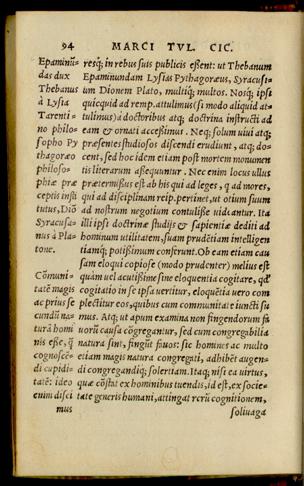 94 MARCI TVL. CIC.
Epaminũ-
das dux
Thebanus
à Lysia
Tarenti-
no philo-
sopho Py
thagoræo
philoso-
phiæ præ
ceptis insti
tutus, Diõ
Syracusa-
nus à Pla-
tone.
Cõmuni-
tatẽ magis
ac prius se
cundũ na-
turã homi
nis esse, ꝗ̃
cognoscẽ-
di cupidi-
tatẽ: ideo
enim disci
mus
resq́; in rebus suis publicis essent: ut Thebanum
Epaminundam Lysias Pythagoræus, Syracusi-
um Dionem Plato, multiq́; multos. Nosq́; ipsi
quicquid ad remp. attulimus (si modo aliquid at-
tulimus) à doctoribus atq; doctrina instructi ad
eam & ornati accessimus. Neq; solum uiui atq;
præsentes studiosos discendi erudiunt, atq; do-
cent, sed hoc idem etiam post mortem monumen
tis literarum assequuntur. Nec enim locus ullus
prætermissus est ab his qui ad leges, q̃ ad mores,
qui ad disciplinam reip. pertinet, ut otium suum
ad nostrum negotium contulisse uideantur. Ita
illi ipsi doctrinæ studijs & sapientiæ dediti ad
hominum utilitatem, suam prudẽtiam intelligen
tiamq́; potissimum conferunt. Ob eam etiam cau
sam eloqui copiose (modo prudenter) melius est
quàm uel acutissime sine eloquentia cogitare, qđ
cogitatio in se ipsa uertitur, eloquẽtia uero com
plectitur eos, quibus cum communitate iuncti su
mus. Atq; ut apum examina non fingendorum fa
uorũ causa cõgregantur, sed cum congregabilia
natura sint, fingũt fauos: sic homines ac multo
etiam magis natura congregati, adhibẽt augen-
di congregandiq́; solertiam. Itaq; nisi ea uirtus,
quæ cõstat ex hominibus tuendis, id est, ex socie-
tate generis humani, attingat rerũ cognitionem,
soliuaga